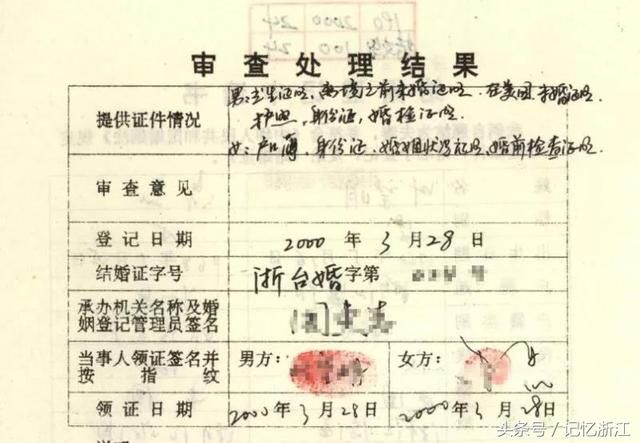 190 2000 24
100 24
审查处理结果
提供证件情况
男:出生证明,离境之前未婚证明,在美国未婚证明
护照,身份证,婚检证明
女:户口簿,身份证,婚姻状况证明,婚前检查证明
审查意见
登记日期 2000 年 3 月 28 日
结婚证字号 浙台婚 字第 号
承办机关名称及婚
姻登记管理员签名
当事人领证签名并 男方: 女方:
按指纹
领证日期 2000 年 3 月 28 日 2000 年 3 月 28 日
头条号/记忆浙江